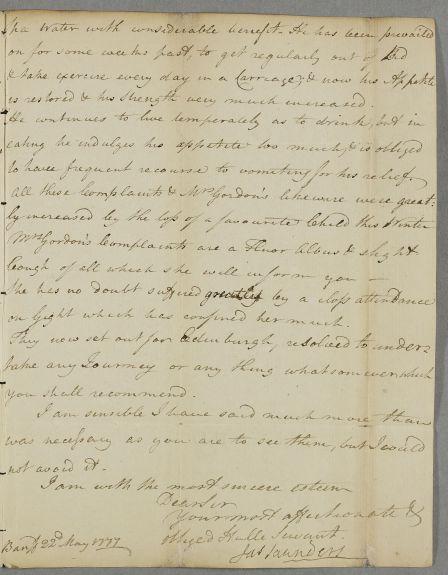 Spa Water with considerable benefit. He has been prevailed
on for some weeks past, to get regularly out of Bed
& take exercise every day in a Carriage, & now his Appetite
is restored & his strength very much increased.
He continues to live temperately as to drink, but in
eating he indulges his appetite too much, & is obliged
to have frequent recourse to vomiting for his relief.
All these Complaints & Mrs Gordon's likewise were great=
ly increased by the loss of a favourite Child this Winter
Mrs Gordon's Complaints are a Fluor Albus & slight
Cough of all which she will inform you —
She has no doubt suffered greatly by a close attendance
on Gight which has confined her much.
They now set out for Edinburgh, resolved to under=
take any Journey or any thing whatsomever which
you shall recommend.
I am sensible I have said much more than
was necessary as you are to see them, but I could
not avoid it.
I am with the most sincere esteem
Dear Sir
Your most affectionate &
obliged Hulle Servant.
Jas Saunders
Banff 22d May 1777